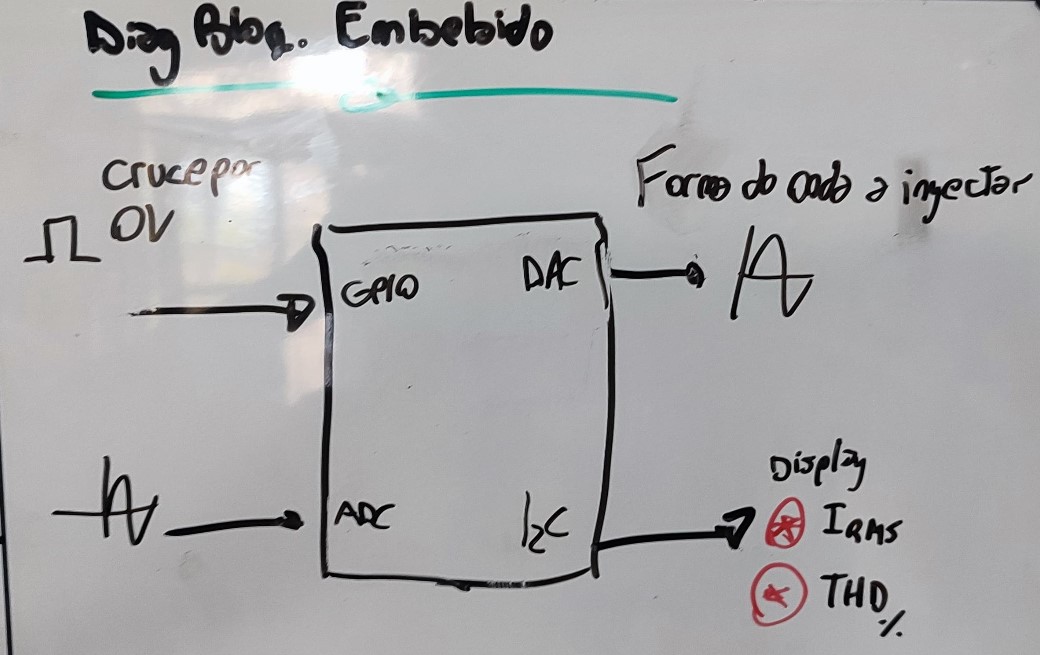 Diag Bloq. Embebido
Cruce por
0V
Forma de onda a inyectar
GPIO
DAC
ADC
I2C
Display
IRMS
THD
%